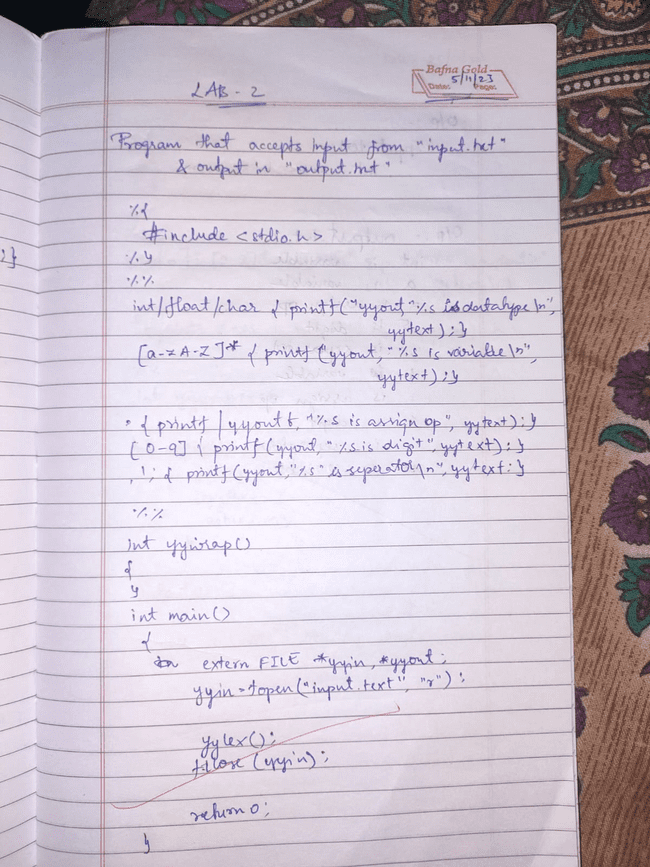 LAB - 2
Bafna Gold
Date: 5/11/23 Page:
Program that accepts Input from "input.txt"
& output in "output.txt"
%{
#include <stdio.h>
%}
%%
int/float/char { printf("yyout "%s is datatype \n",
yytext); }
[a-zA-Z]* { printf ("yyout, "%s is variable \n",
yytext); }
= { printf | yyout t, "%s is assign op", yytext); }
[0-9] { printf (yyout, "%s is digit", yytext); }
, '; { printf (yyout, "%s" is seperator \n", yytext: }
%%
int yywrap()
{
}
int main()
{
extern FILE *yyin, *yyout;
yyin = fopen ("input.text", "r");
yylex();
fclose (yyin);
return 0;
}
2}